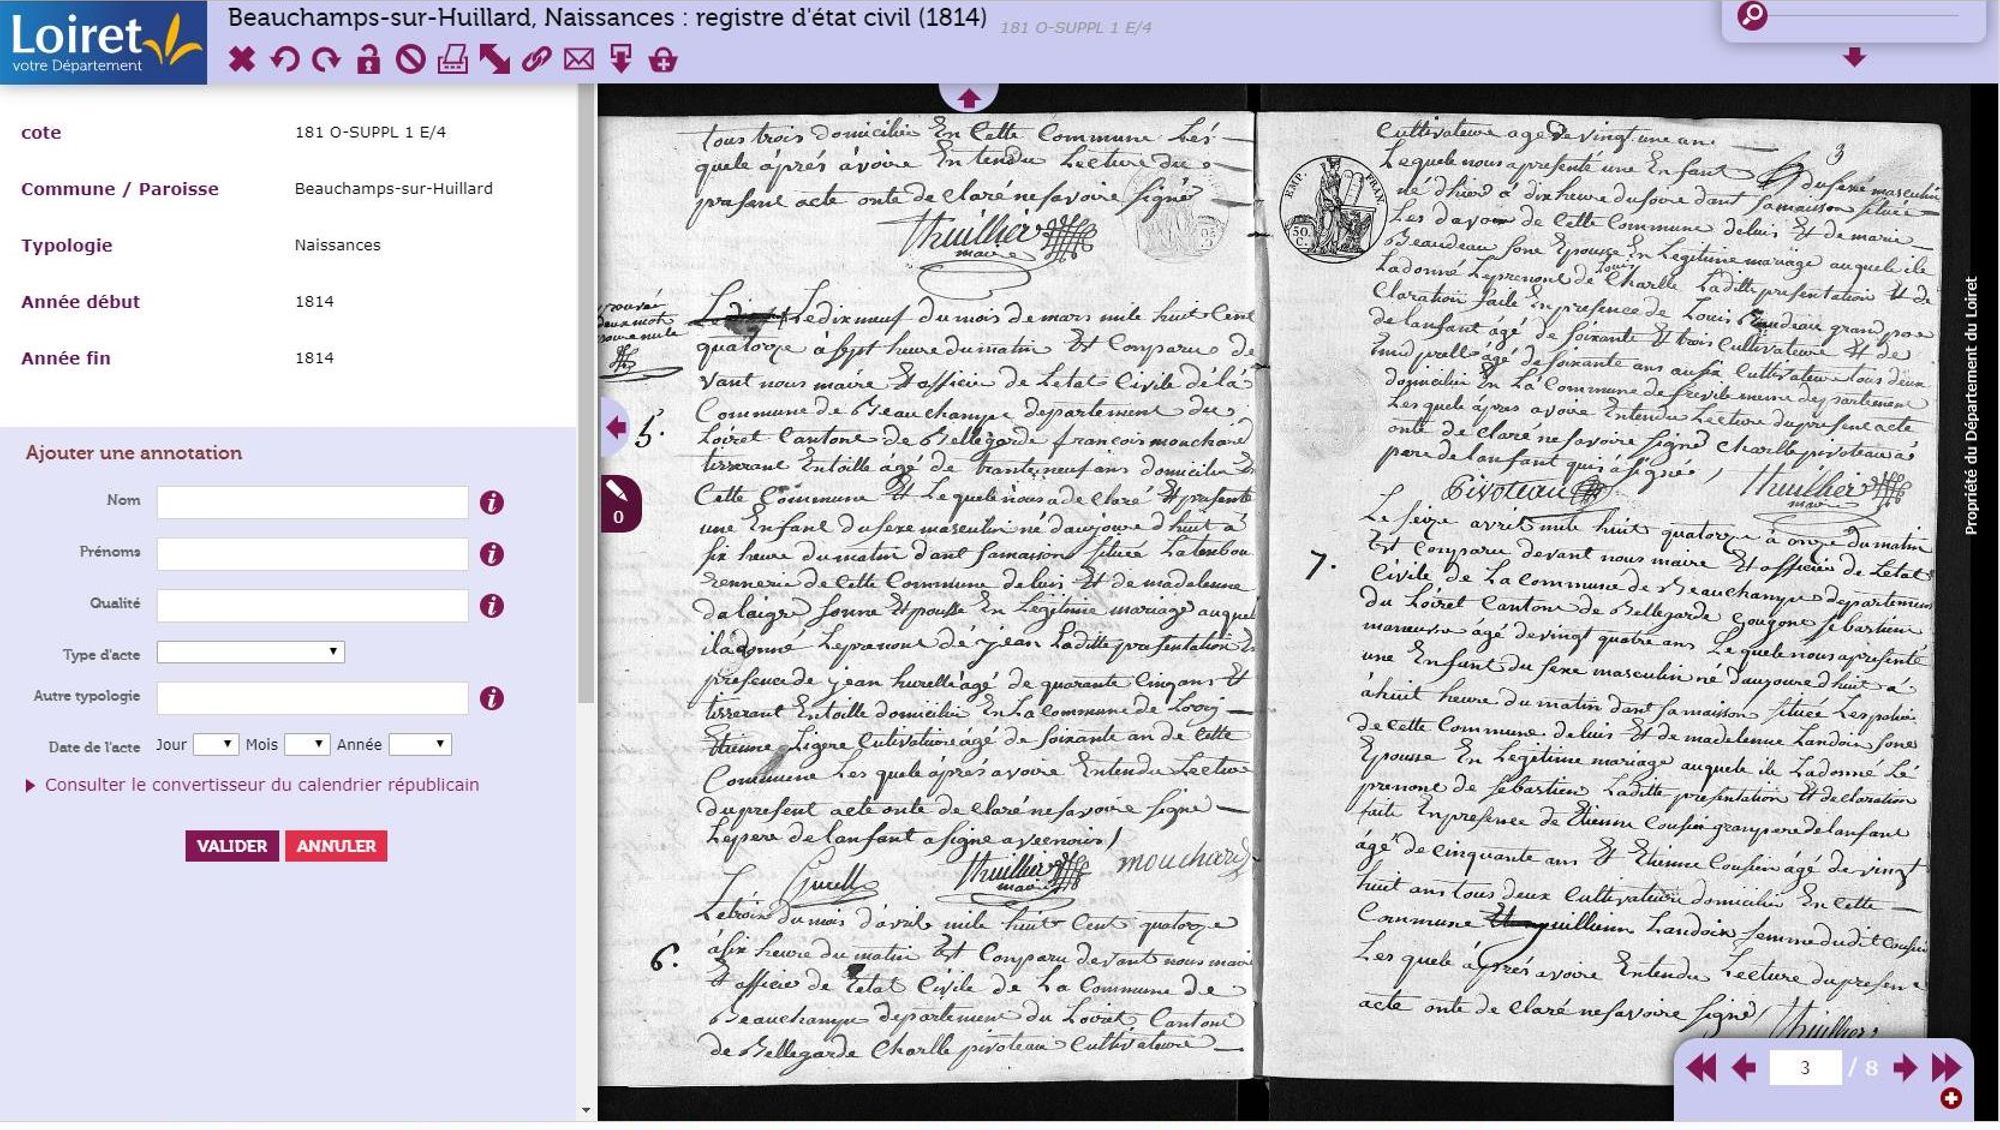 Loiret
votre Département
Beauchamps-sur-Huillard, Naissances : registre d'état civil (1814) 181 O-SUPPL 1 E/4
cote 181 O-SUPPL 1 E/4
Commune / Paroisse Beauchamps-sur-Huillard
Typologie Naissances
Année début 1814
Année fin 1814
Ajouter une annotation
Nom
Prénoms
Qualité
Type d'acte
Autre typologie
Date de l'acte Jour Mois Année
Consulter le convertisseur du calendrier républicain
VALIDER ANNULER
0
tous trois domicilié En Cette Commune Les
quele áprés avoire Entendu Lecture du
present acte onte de claré ne savoire signé
thuillier
maire
Le dix neuf du mois de mars mile huit Cent
quatorze a sept heure du matin Et Comparu de
vant nous maire Et officier de Letat Civile de la
5.
Commune de Beauchamps departement du
Loiret Cantone de Bellegarde francois mouchard
tisserant Entoille âgé de trante neuf ans domicilié En
Cette Commune Et Lequele nous a de claré Et presente
une Enfant du sexe masculin né d'aujourd'huit a
six heure du matin dant sa maison située
de cette Commune de luis Et de madelenne
dalaigre sonne Epouse En Legitime mariage auquel
il a donné Leprenont de jean Laditte presentation En
presence de jean âgé de quarante Cinq ans Et
tisserant Entoille domicilié En La Commune de Lorry
Etienne Ligere Cutivateur âgé de soixante an de Cette
Commune Les quele áprés avoire Entendu Lecture
du present acte onte de claré ne savoire signé
Lepere de lanfant a signe avec nous
thuillier mouchard
maire
Le trois du mois d'avril mile huit Cent quatorze
6.
a six heure du matin Est Comparu devant nous maire
Et officier de Letat Civile de La Commune de
Beauchamps departement du Loiret Cantone
de Bellegarde Charlle pivoteau Cultivateure
3
EMP. FRAN.
50 C.
Cultivateure age de vingt une an
Lequele nous a presente une Enfant du sexe masculin
né d'hier a dix heure du soire dant sa maison située
Les de Cette Commune de luis Et de marie
Beaudeau sone Epouse En Legitime mariage auquele ile
Ladonné Leprenont de Louis Charlle Laditte presentation Et de
claration faite En presence de Louis Beaudeau grand pere
de lanfant âgé de soixante Et trois Cultivateure Et de
âgé de soixante ans aussi Cultivateure tous deux
domicilié En La Commune de freville meme departement
Les quele áprés avoire Entendu Lecture du present acte
onte de claré ne savoire signé Charlle pivoteau
pere de lanfant qui a signé
Pivoteau thuillier
maire
Le seize avril mile huit quatorze à onze du matin
7.
Est Comparu devant nous maire Et officier de Letat
Civile de La Commune de Beauchamps departement
du Loiret Cantone de Bellegarde gougone sebastien
maneuvre âgé de vingt quatre ans Lequele nous a presenté
une Enfant du sexe masculin né d'aujourd'huit a
à huit heure du matin dant sa maison située
de cette Commune de luis Et de madelenne Landoin sone
Epouse En Legitime mariage auquele ile Ladonné Le
prenont de sebastien Laditte presentation Et declaration
faite En presence de Etienne Cousin granpere de lanfant
âgé de cinquante ans Et Etienne Cousin âgé de vingt
huit ans tous deux Cultivateure domicilié En Cette
Commune Landoin femme dudit Cousin
Les quele áprés avoire Entendu Lecture du present
acte onte de claré ne savoire signé
thuillier
Propriété du Département du Loiret
3 / 8